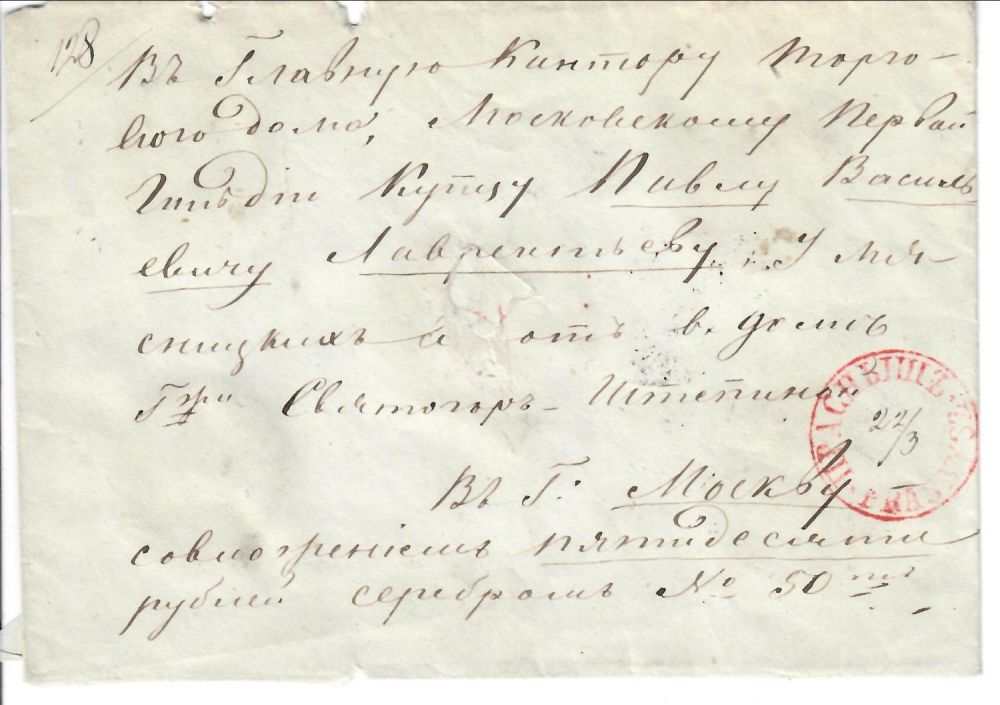 128
Въ Главную Кантору торго-
вого дома, Московскому Первай
Гильдіи Купцу Павлу Василь
евичу Лаврентьеву, У мя-
сницкихъ воротъ в. домѣ
Гжи Святогоръ-Штепиной
ПРАСНЫШЪ
22/3
Въ Г: Москву
совложеніемъ пятидесяти
рублей серебромъ № 50